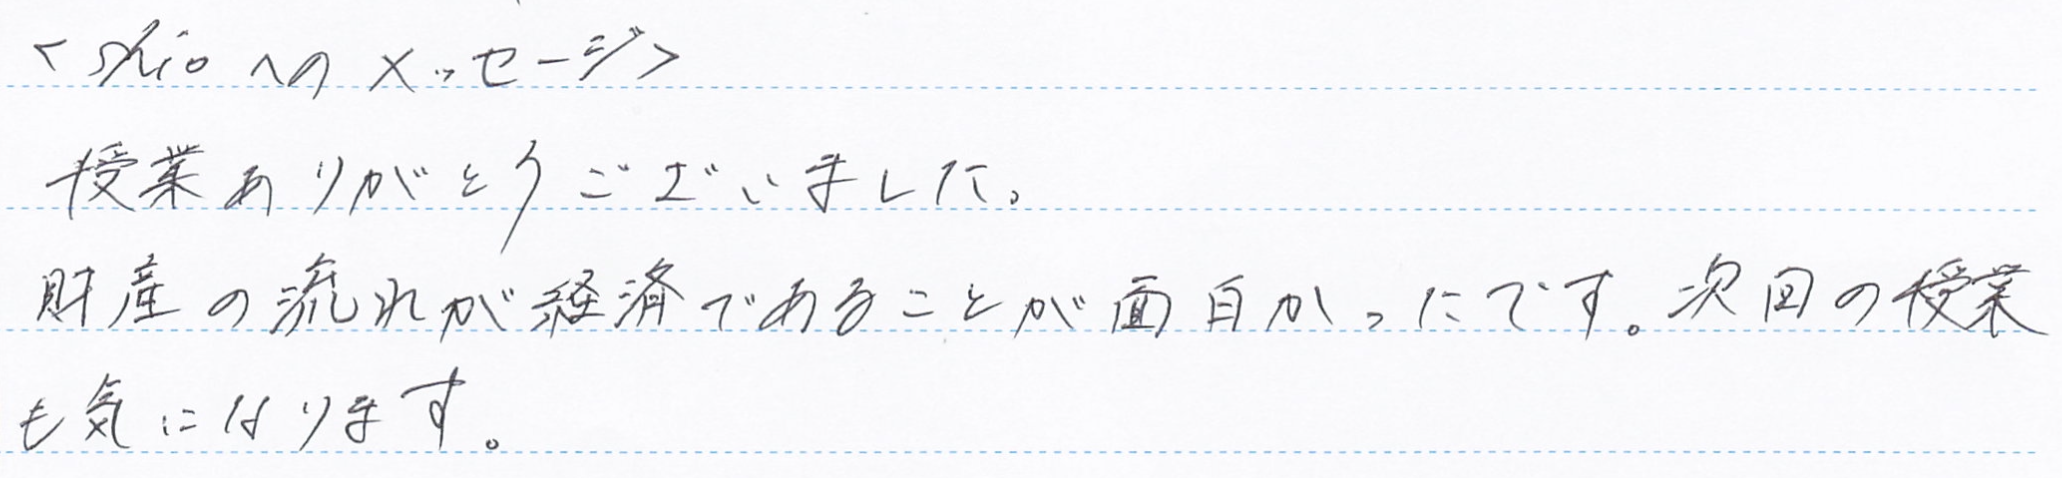 <shioへのメッセージ>
授業ありがとうございました。
財産の流れが経済であることが面白かったです。次回の授業
も気になります。